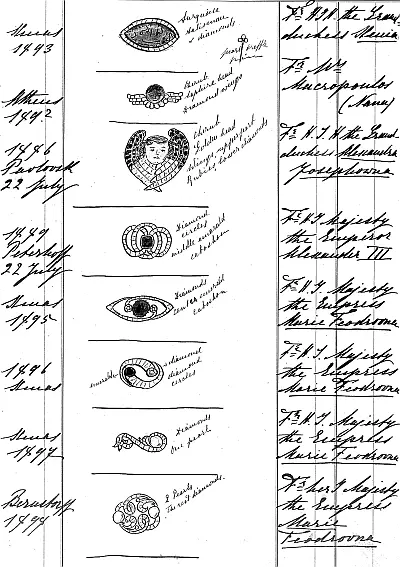 Xmas
1893
Turquoise
talisman
& diamonds
Fr H.I.H. the Grand
duchess Xenia
Athens
1892
Scarab
sapphire head
diamond wings
Fr Mrs
Macropoulos
(Nana)
1886
Pavlovsk
22 July
Cherub
Golden head
Wings, upper part
Rubies, lower diamonds
Fr H.I.H. the Grand
duchess Alexandra
Josephowna
1889
Peterhoff
22 July
Diamond
circles
middle emerald
cabochon
Fr H.I. Majesty
the Emperor
Alexander III
Xmas
1895
Diamonds
center emerald
cabochon
Fr H.I. Majesty
the Empress
Marie Feodrovna
1896
Xmas
emeralds
diamond
diamond
circles
Fr H.I. Majesty
the Empress
Marie Feodrovna
Xmas
1897
Diamonds
One pearl
Fr H.I. Majesty
the Empress
Marie Feodrovna
Bernstorff
1899
2 Pearls
The rest diamonds.
Fr her I Majesty
the Empress
Marie
Feodrovna